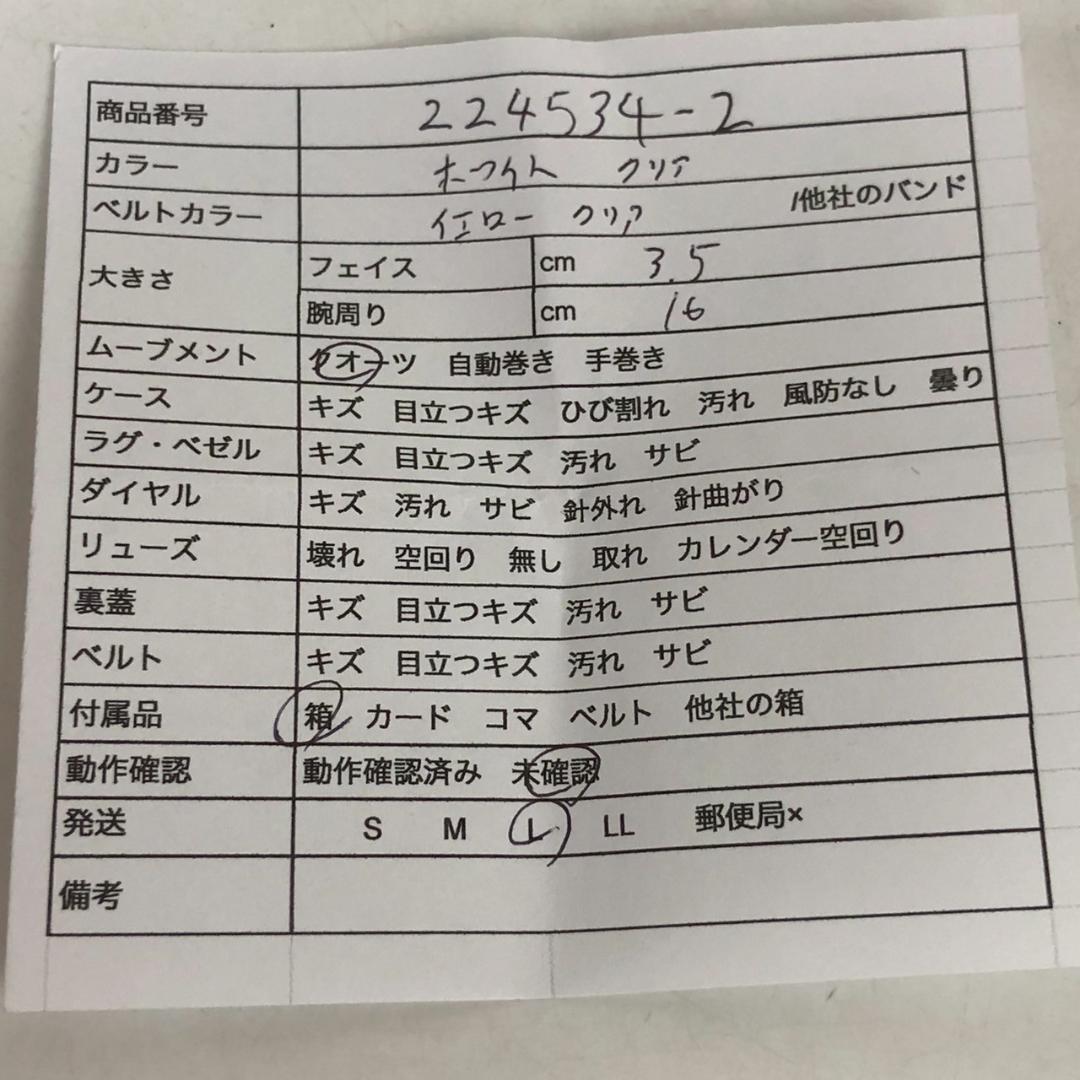 商品番号 224534-2
カラー ホワイト クリア
ベルトカラー イエロー クリア /他社のバンド
大きさ フェイス cm 3.5
腕周り cm 16
ムーブメント クオーツ 自動巻き 手巻き
ケース キズ 目立つキズ ひび割れ 汚れ 風防なし 曇り
ラグ・ベゼル キズ 目立つキズ 汚れ サビ
ダイヤル キズ 汚れ サビ 針外れ 針曲がり
リューズ 壊れ 空回り 無し 取れ カレンダー空回り
裏蓋 キズ 目立つキズ 汚れ サビ
ベルト キズ 目立つキズ 汚れ サビ
付属品 箱 カード コマ ベルト 他社の箱
動作確認 動作確認済み 未確認
発送 S M L LL 郵便局×
備考